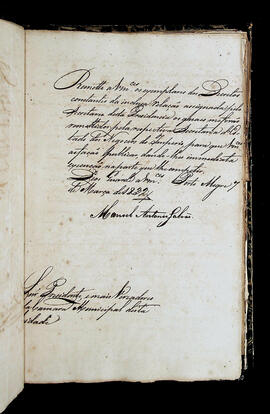 Remetto a Vm.ces os exemplares dos Decretos
constantes da incluza relação assignada pelo
Secretario desta Presidencia os quaes me forão
remettidos pela respectiva Secretaria d'Es-
tado dos Negocios do Imperio para que Vm.ces
a fação publicar, dando-lhes immediata
execução na parte que lhe compete.
Deos Guarde a Vm.ces Porto Alegre 7
de Março de 1832
Manoel Antonio Galvão
Snr.es Presidente, e mais Vereadores
da Camara Municipal desta
Cidade